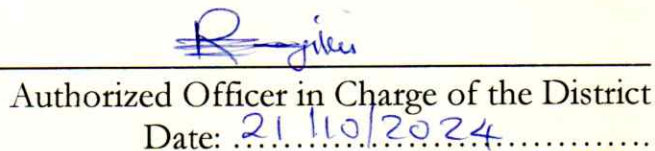 Authorized Officer in Charge of the District
Date: 21/10/2024